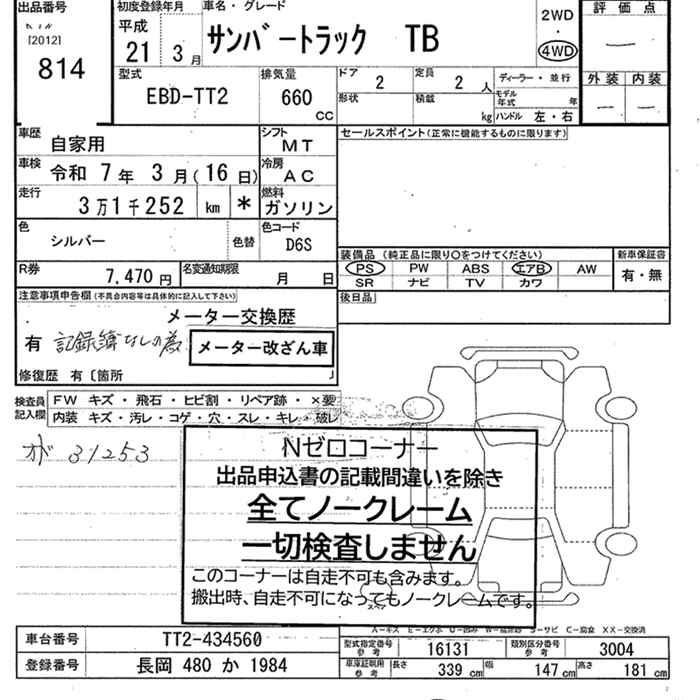 出品番号
[2012]
814
初度登録年月
平成
21年 3月
車名・グレード
サンバートラック TB
2WD
・
4WD
評価点
—
外装 内装
— —
型式
EBD-TT2
排気量
660
CC
ドア 2
定員 2 人
形状
積載 kg
ディーラー・並行
モデル年式 年
ハンドル 左・右
車歴 自家用
シフト MT
車検 令和 7年 3月(16日)
冷房 AC
走行 3万1千252 km *
燃料 ガソリン
色 シルバー 色替
色コード D6S
R券 7,470 円
名変通知期限 月 日
セールスポイント(正常に機能するものに限ります)
装備品 (純正品に限り○をつけてください)
PS PW ABS エアB AW
SR ナビ TV カワ
新車保証書
有・無
後日品
注意事項申告欄(不具合内容等は具体的に記入して下さい)
メーター交換歴
有 記録簿なしの為
メーター改ざん車
修復歴 有〔箇所 〕
検査員記入欄
FW キズ・飛石・ヒビ割・リペア跡・×要
内装 キズ・汚レ・コゲ・穴・スレ・キレ・破レ
オド 31253
Nゼロコーナー
出品申込書の記載間違いを除き
全てノークレーム
一切検査しません
このコーナーは自走不可も含みます。
搬出時、自走不可になってもノークレームです。
スペア
A-キズ E-エクボ U-凹み W-補修跡 S-サビ C-腐食 XX-交換済
車台番号 TT2-434560
登録番号 長岡 480 か 1984
型式指定番号 参考 16131
類別区分番号 参考 3004
車庫証明用 参考 長さ 339 cm 幅 147 cm 高さ 181 cm